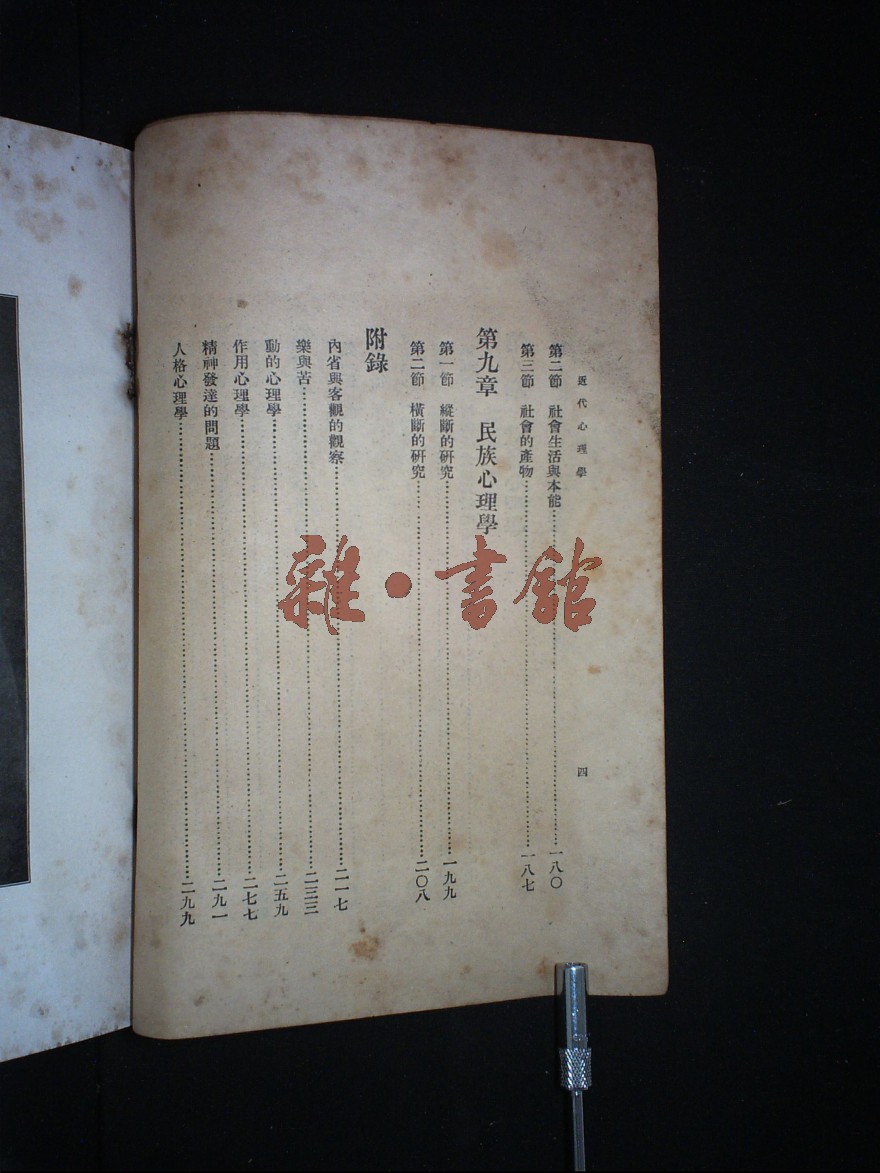 近代心理學
四
第二節 社會生活與本能……一八〇
第三節 社會的產物……一八七
第九章 民族心理學
第一節 縱斷的研究……一九九
第二節 橫斷的研究……二〇八
附錄
內省與客觀的觀察……二一七
樂與苦……二三三
動的心理學……二五九
作用心理學……二七七
精神發達的問題……二九一
人格心理學……二九九
雜·書館